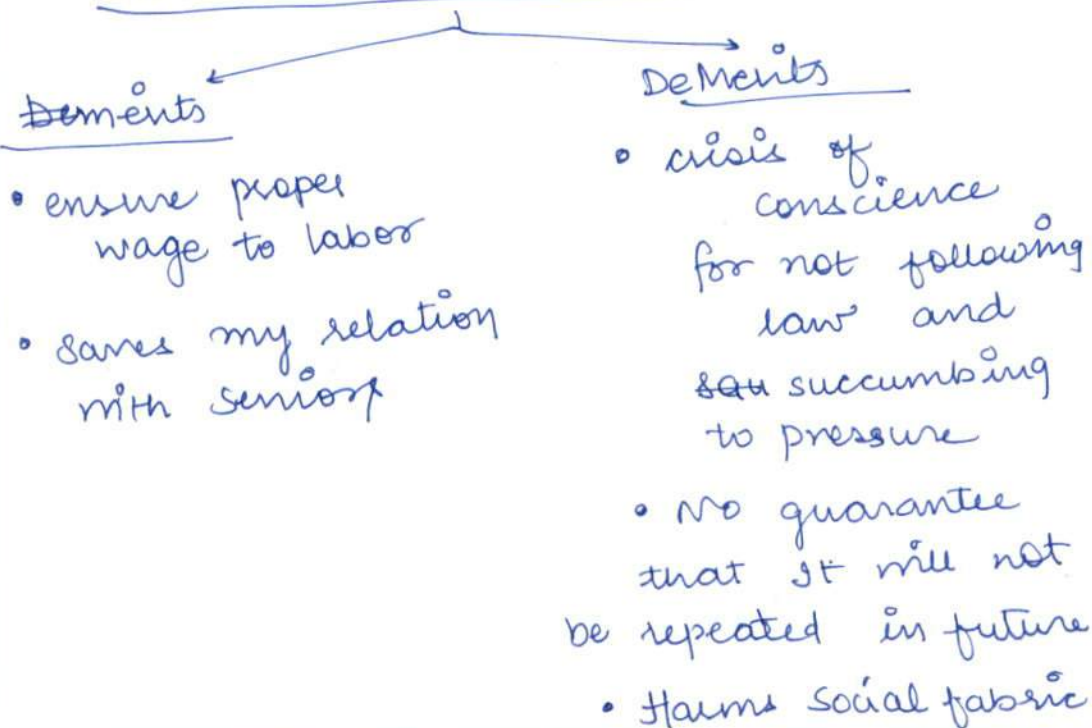 merits
• ensure proper
wage to labor
• saves my relation
with senior
DeMerits
• crisis of
conscience
for not following
law and
succumbing
to pressure
• No guarantee
that It will not
be repeated in future
• Harms social fabric